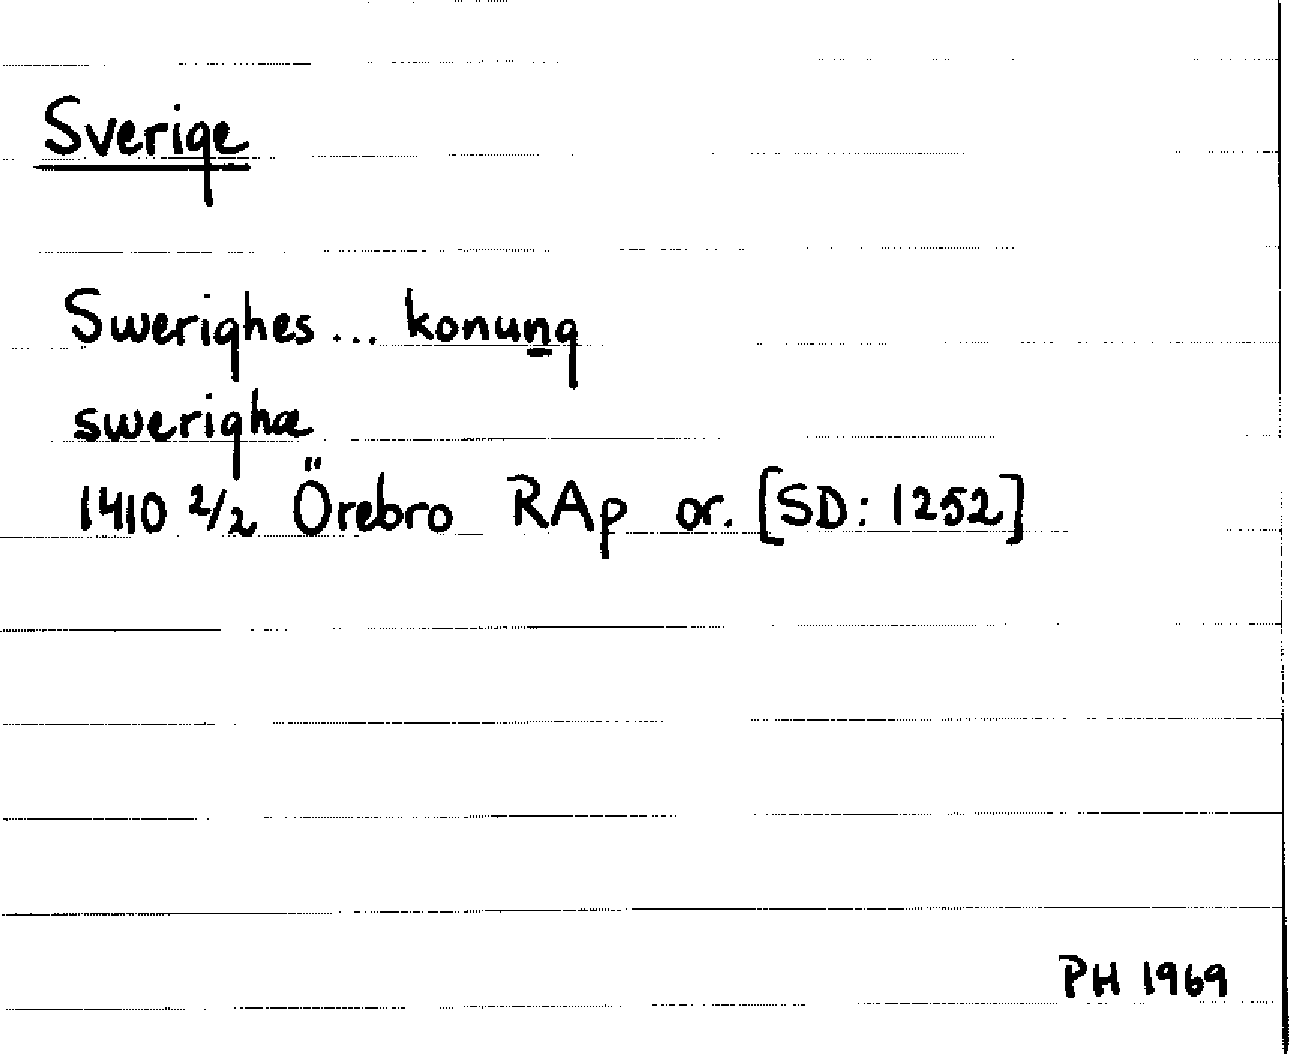 Sverige
Swerighes... konung
swerighæ
1410 2/2 Örebro RAp or. [SD: 1252]
PH 1969